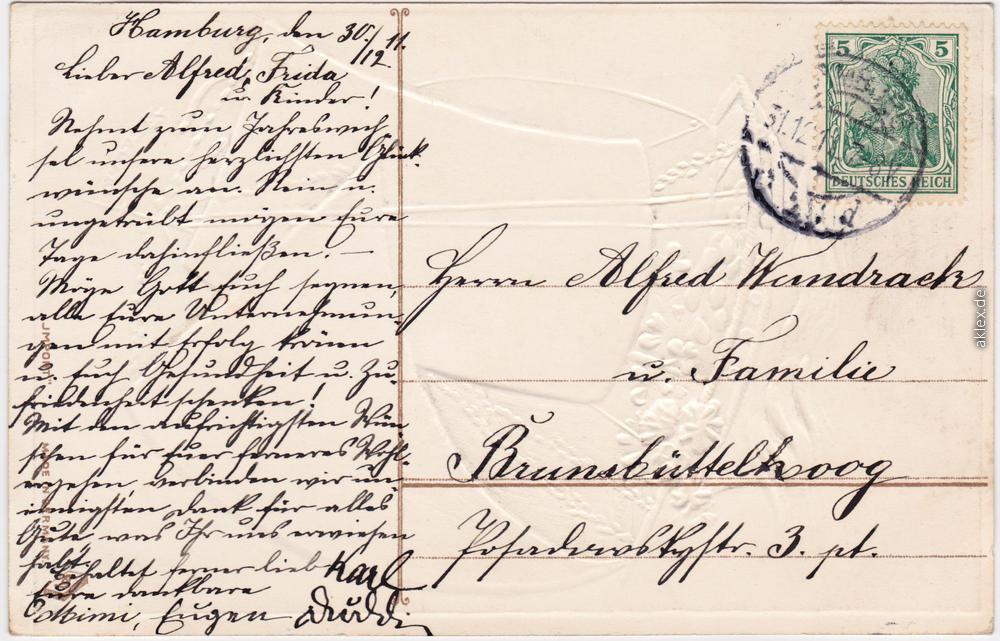 Hamburg, den 30./12. 11.
Lieber Alfred, Frida
u. Kinder!
Nehmt zum Jahreswech-
sel unsere herzlichsten Glück-
wünsche an. Rein u.
ungetrübt mögen Eure
Tage dahinfließen. —
Möge Gott Euch segnen,
alle Eure Unternehmun-
gen mit Erfolg krönen
u. Euch Gesundheit u. Zu-
friedenheit schenken!
Mit den aufrichtigsten Wün-
schen für Euer ferneres Wohl-
ergehen, verbinden wir un.
innigsten Dank für alles
Gute, was Ihr uns erwiesen
habt.
Behaltet ferner lieb
Eure dankbare
Mimi, Eugen
Karl
5 5
DEUTSCHES REICH
31.12.
Herrn Alfred Wandrack
u. Familie
Brunsbüttelkoog
Posadowskystr. 3. pt.
IMPORT
MADE IN GERMANY
aklex.de